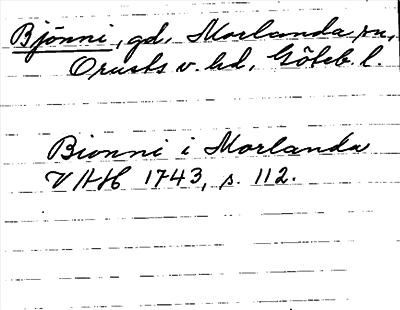 Bjönni, gd, Morlanda sn,
Orusts v. hd, Göteb. l.
Bionni i Morlanda
VAH 1743, s. 112.